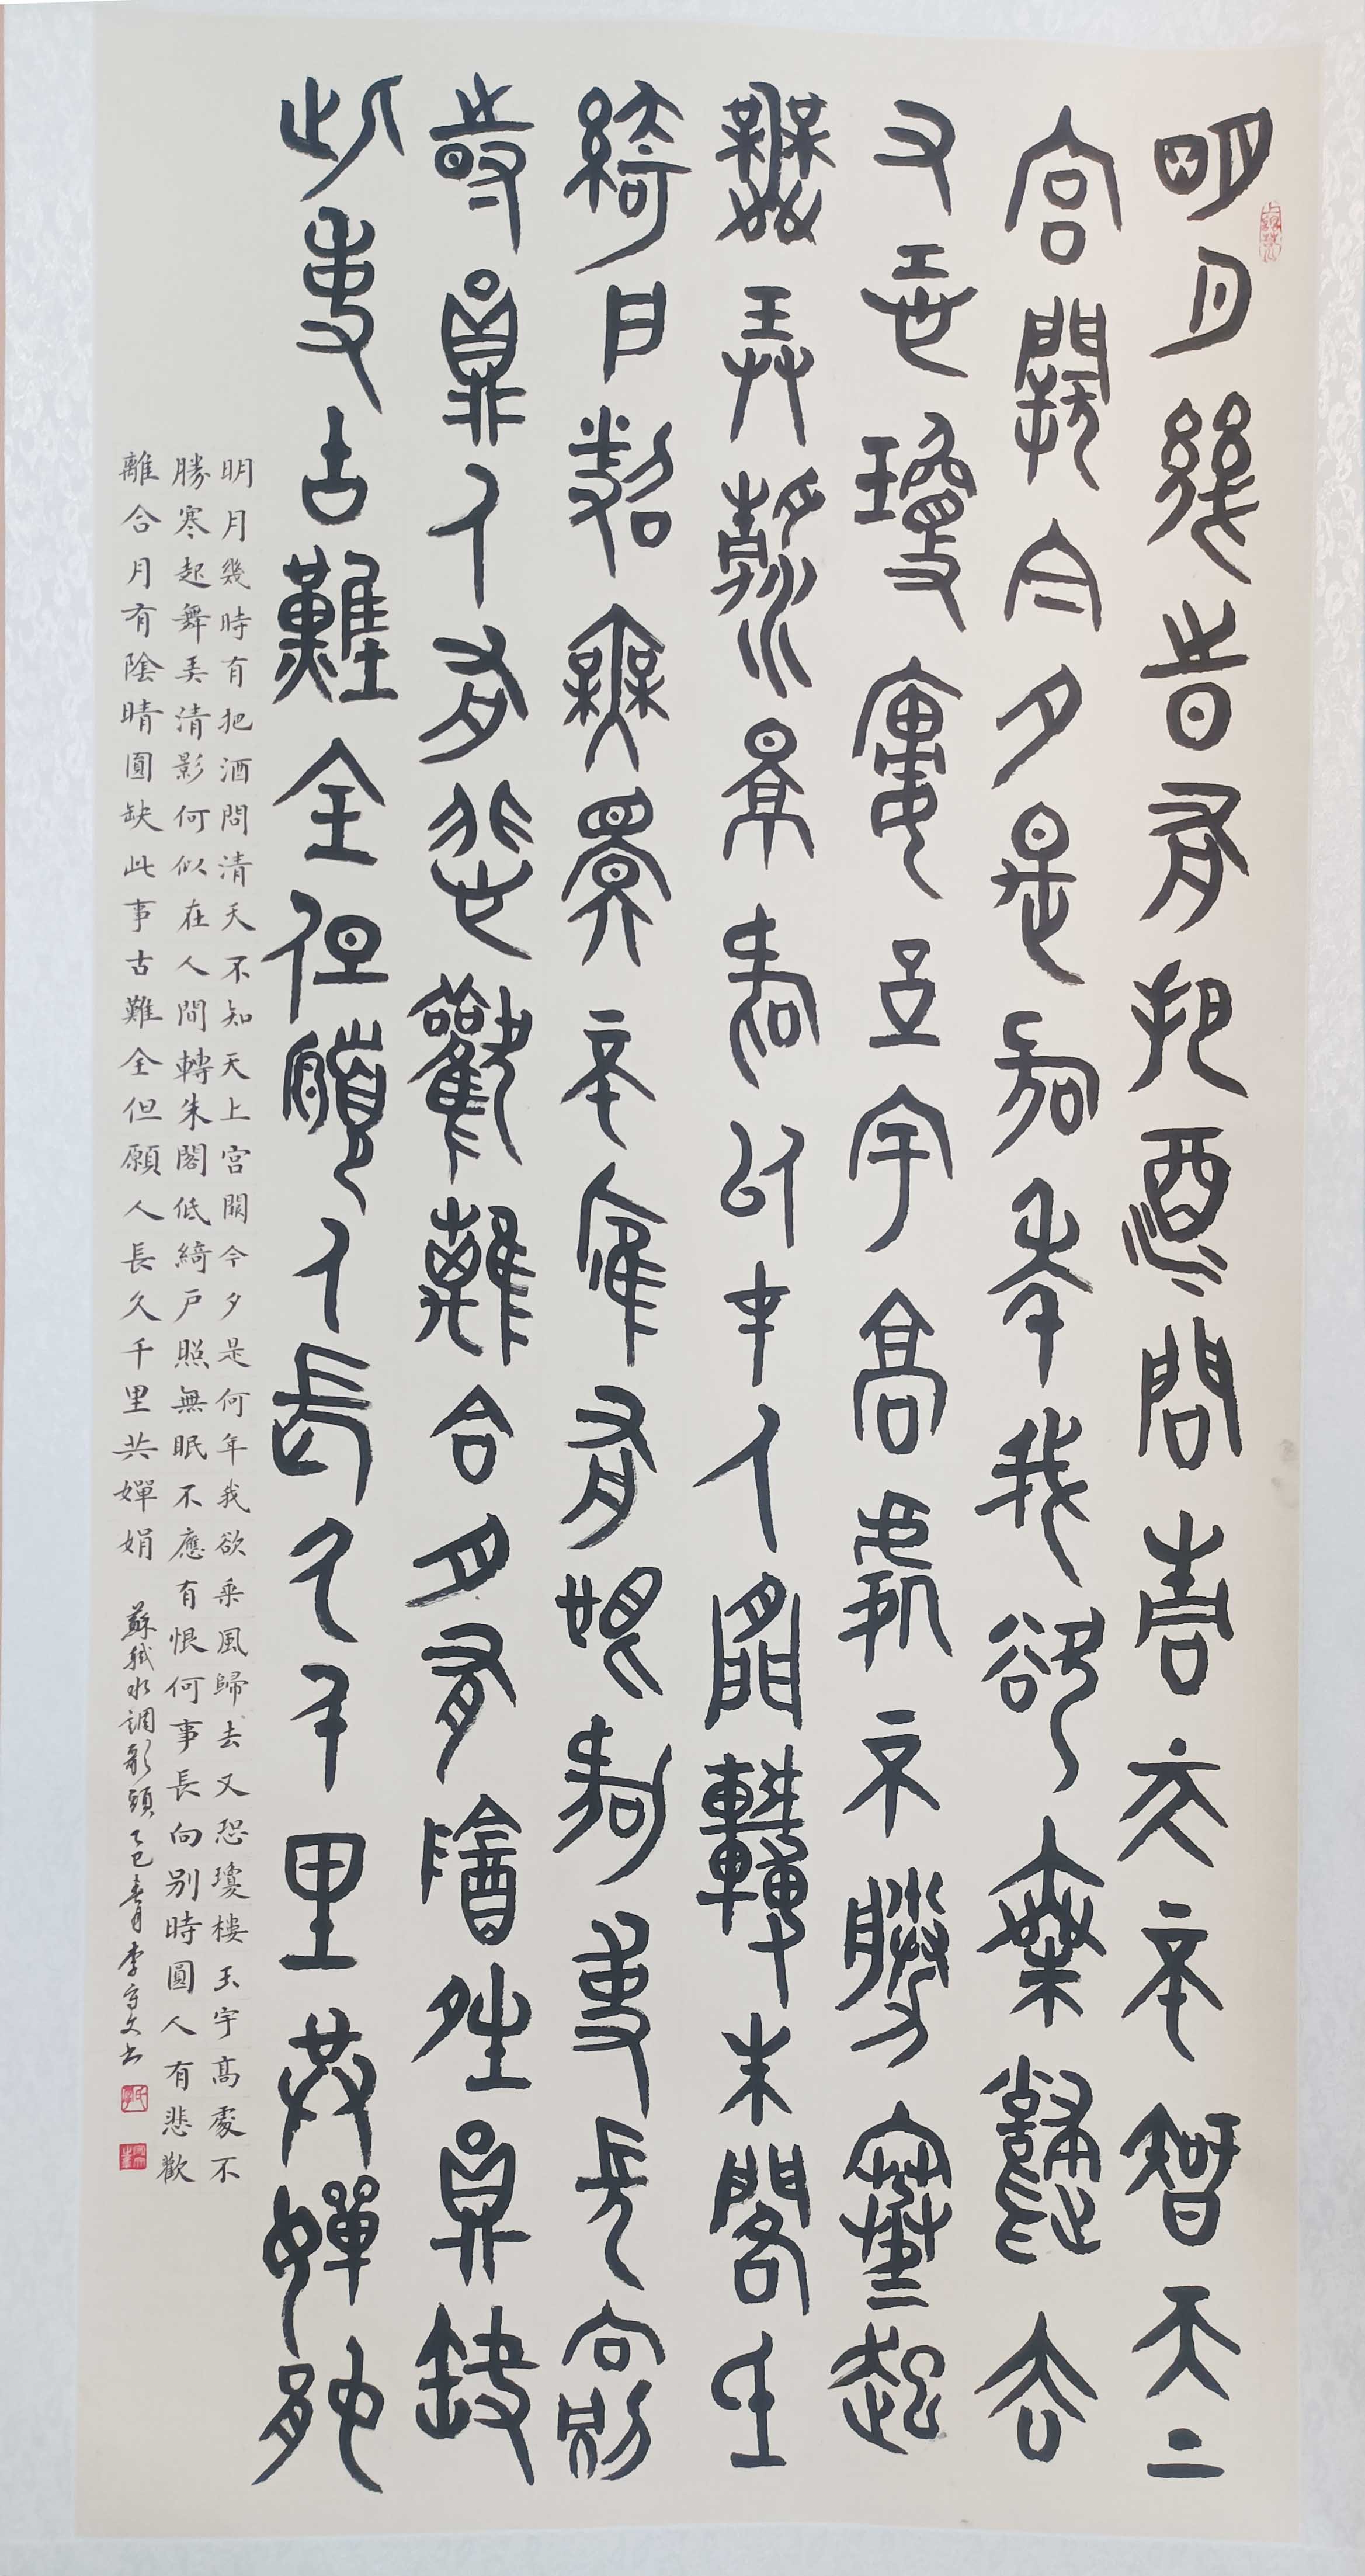 明月幾時有把酒問青天不智天上
宮闕今夕是何年我欲乘歸去
又恐瓊樓玉宇高處不勝寒起
舞弄清影何似在人間轉朱閣低
綺戶照無眠不應有恨何事長向別
時圓人有悲歡離合月有陰晴圓缺
此事古難全但願人長久千里共嬋娟
明月幾時有把酒問清天不知天上宮闕今夕是何年我欲乘風歸去又恐瓊樓玉宇高處不
勝寒起舞弄清影何似在人間轉朱閣低綺戶照無眠不應有恨何事長向別時圓人有悲歡
離合月有陰晴圓缺此事古難全但願人長久千里共嬋娟 蘇軾水調歌頭 乙巳青月李守文书